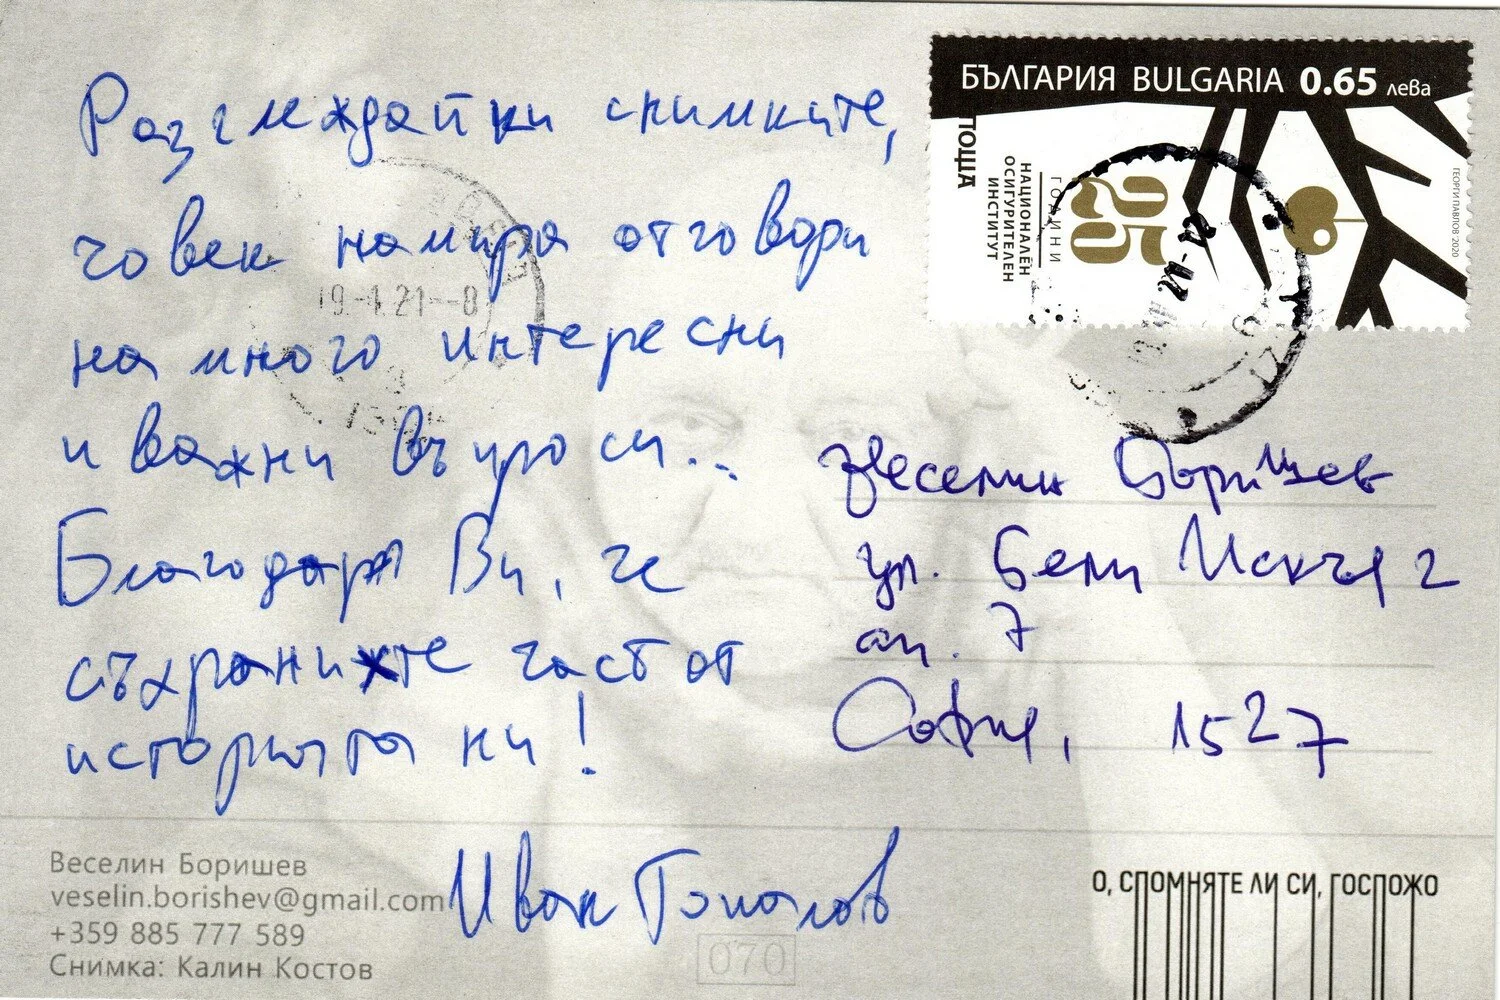 Разглеждайки снимките,
човек намира отговори
на много интересни
и важни въпроси...
Благодаря Ви, че
съхранихте част от
историята ни!
Иван Топалов
БЪЛГАРИЯ BULGARIA 0.65 лева
ПОЩА
ГОДИНИ
НАЦИОНАЛЕН
ОСИГУРИТЕЛЕН
ИНСТИТУТ
25
ГЕОРГИ ПАВЛОВ '2020
19.-1.21--8
Веселин Боришев
ул. Бели Искър 2
ап. 7
София, 1527
Веселин Боришев
veselin.borishev@gmail.com
+359 885 777 589
Снимка: Калин Костов
070
О, СПОМНЯТЕ ЛИ СИ, ГОСПОЖО